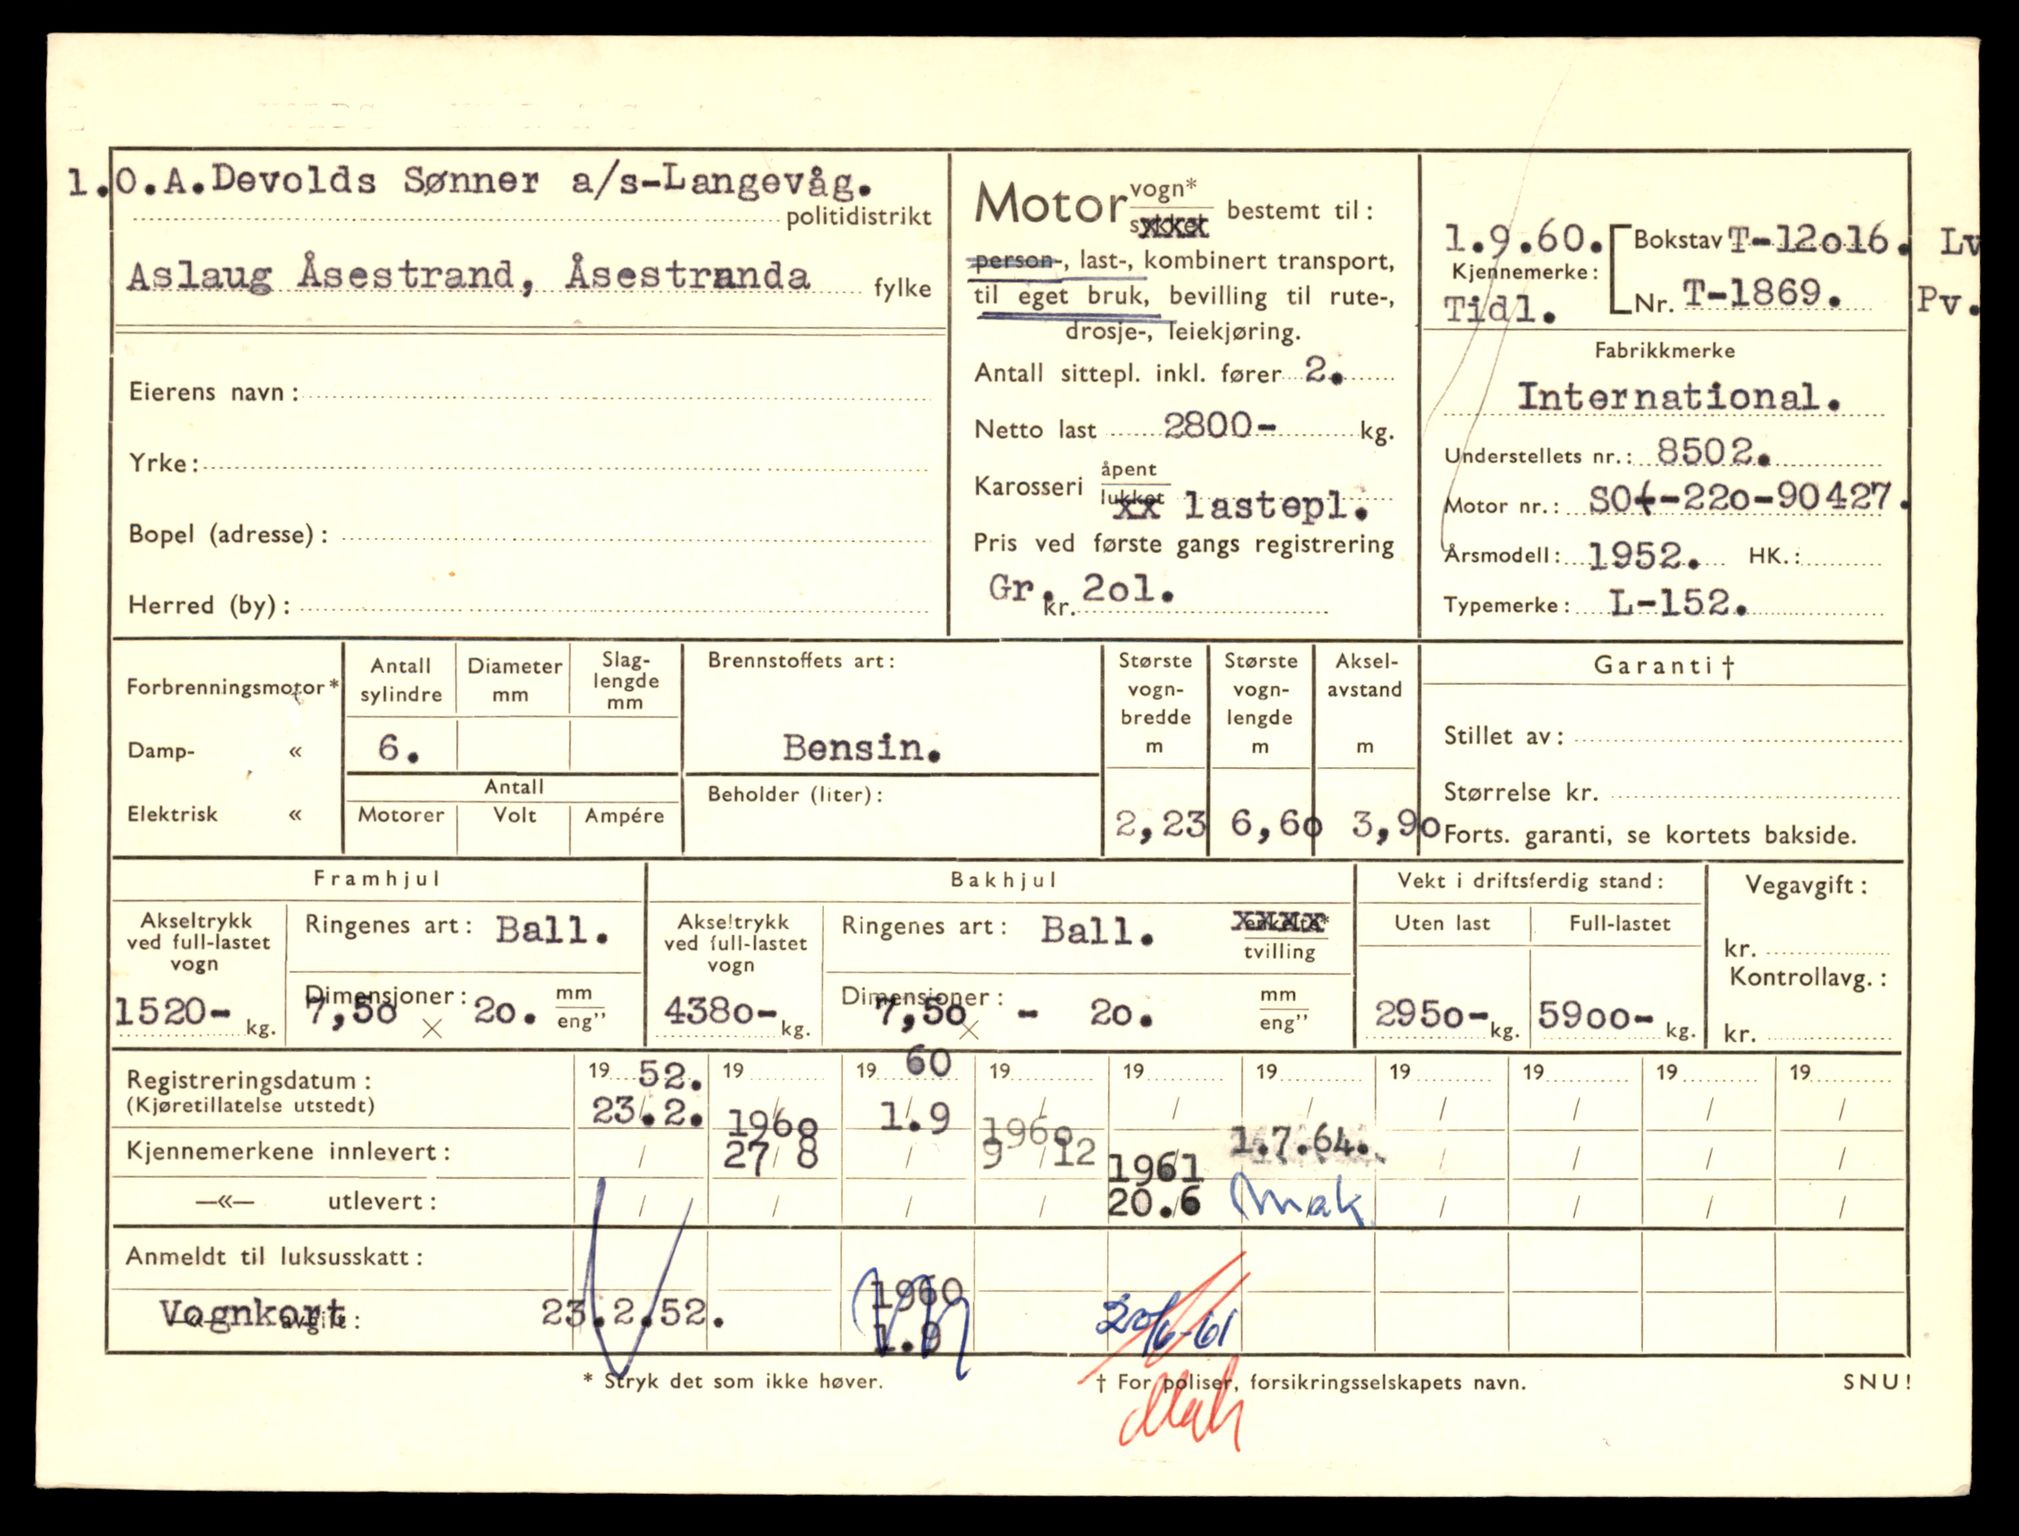 1. O.A.Devolds Sønner a/s-Langevåg.
politidistrikt
Aslaug Åsestrand, Åsestranda fylke
Eierens navn:
Yrke:
Bopel (adresse):
Herred (by):
Motor vogn* bestemt til:
person-, last-, kombinert transport,
til eget bruk, bevilling til rute-,
drosje-, leiekjøring.
Antall sittepl. inkl. fører 2.
Netto last 2800- kg.
Karosseri åpent
lukket
xx lastepl.
Pris ved første gangs registrering
Gr. 2o1.
kr.
1.9.60. Bokstav T-12o16. Lv
Kjennemerke:
Tidl. Nr. T-1869. Pv.
Fabrikkmerke
International.
Understellets nr.: 8502.
Motor nr.: 90427.
Årsmodell: 1952. HK.:
Typemerke: L-152.
Forbrenningsmotor*
Damp- «
Elektrisk «
Antall sylindre
6.
Diameter mm
Slag-
lengde
mm
Antall
Motorer Volt Ampére
Brennstoffets art:
Bensin.
Beholder (liter):
Største
vogn-
bredde
m
2,23
Største
vogn-
lengde
m
6,6o
Aksel-
avstand
m
3,9o
Garanti †
Stillet av:
Størrelse kr.
Forts. garanti, se kortets bakside.
Framhjul
Akseltrykk
ved full-lastet
vogn
1520- kg.
Ringenes art: Ball.
Dimensjoner:
7,5o × 2o. mm
eng”
Bakhjul
Akseltrykk
ved full-lastet
vogn
438o- kg.
Ringenes art: Ball. xxxx
tvilling
Dimensjoner:
7,5o × - 2o. mm
eng”
Vekt i driftsferdig stand:
Uten last Full-lastet
295o- kg. 59oo- kg.
Vegavgift:
kr.
Kontrollavg.:
kr.
Registreringsdatum: 19 52. 19 19 60 19 19 19 19 19 19 19
(Kjøretillatelse utstedt) 23.2. 1.9
196o 196o
Kjennemerkene innlevert: 27/8 9/12 1.7.64.
1961
—«— utlevert: 20.6 Mak
Anmeldt til luksusskatt:
1960
Vognkort 23.2.52. 1.9 20/6-61
avgift:
* Stryk det som ikke høver.
† For poliser, forsikringsselskapets navn.
SNU!